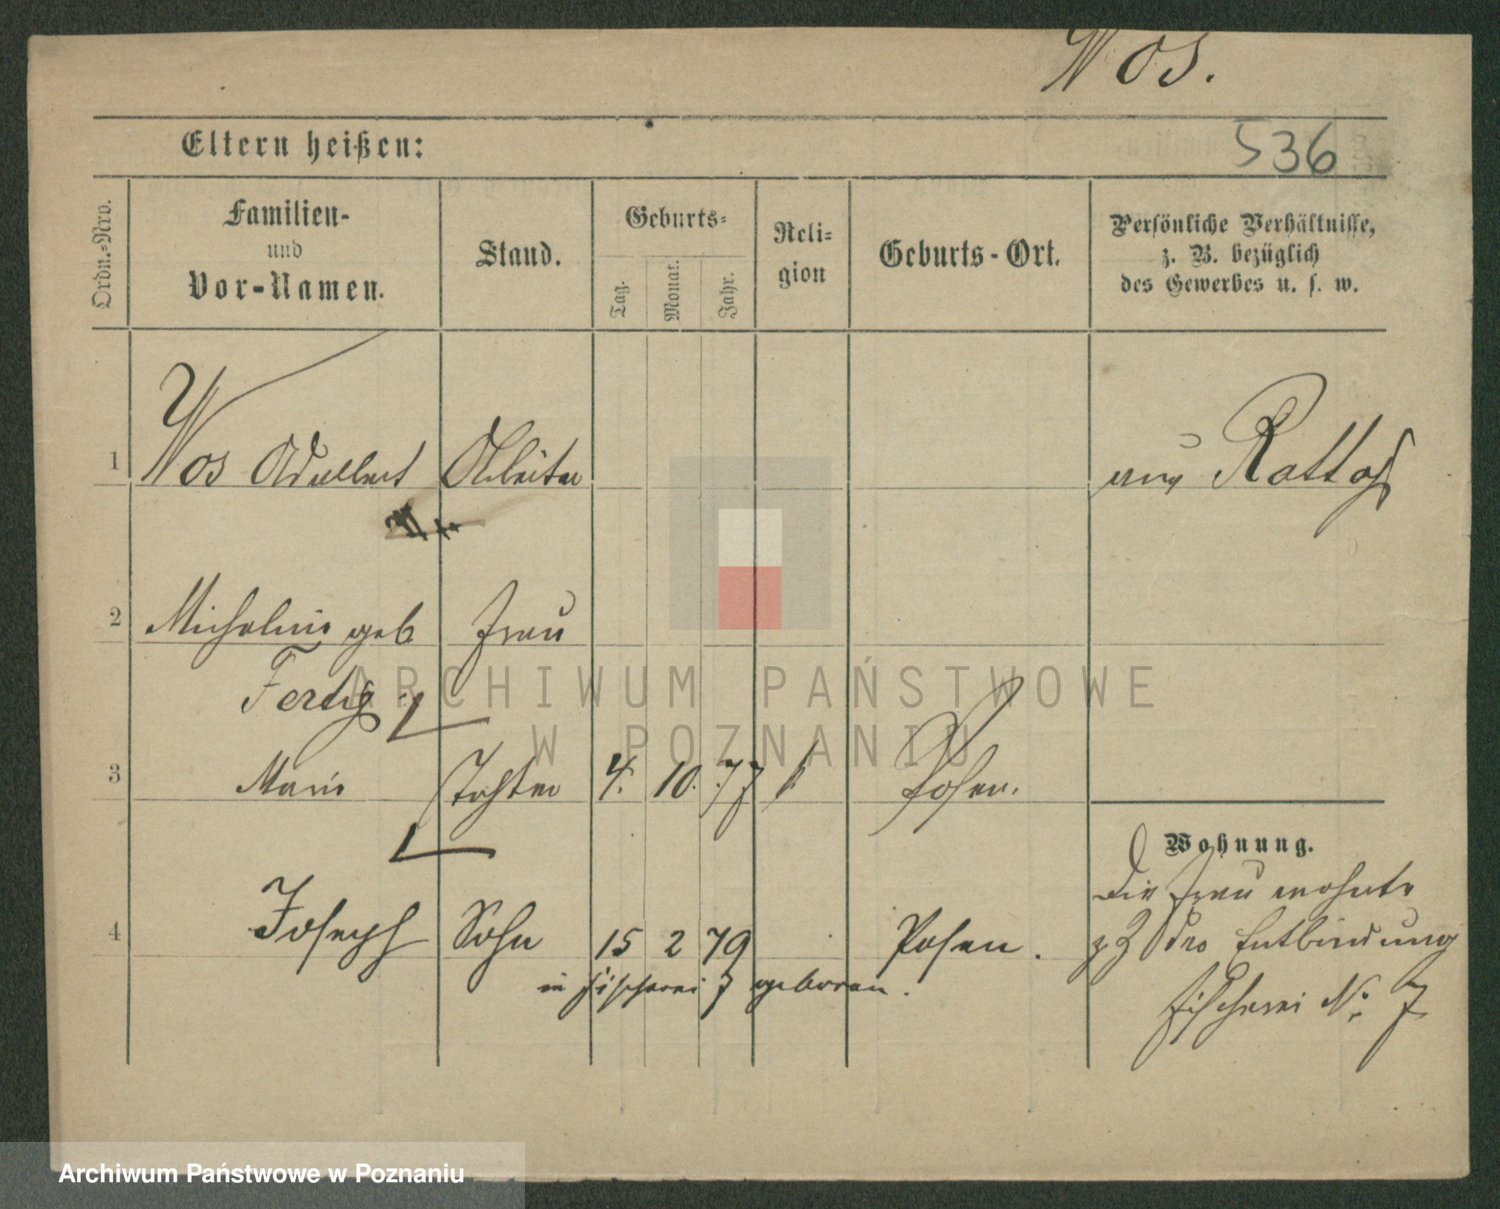 Wos.
Eltern heißen:
536
Ordn.-Nro.
Familien-
und
Vor-Namen.
Stand.
Geburts-
Tag.
Monat.
Jahr.
Reli-
gion
Geburts-Ort.
Persönliche Verhältnisse,
z. B. bezüglich
des Gewerbes u. s. w.
1 Wos Adalbert Arbeiter aus Rattaj
2 Michaline geb Frau
Fertig
ARCHIWUM PAŃSTWOWE
W POZNANIU
3 Marie Tochter 4. 10. 77 k Posen.
Wohnung.
Die Frau wohnte
4 Joseph Sohn 15 2 79 Posen.
z Z der Entbindung
in Fischerei 7 geboren.
Fischerei No 7
Archiwum Państwowe w Poznaniu